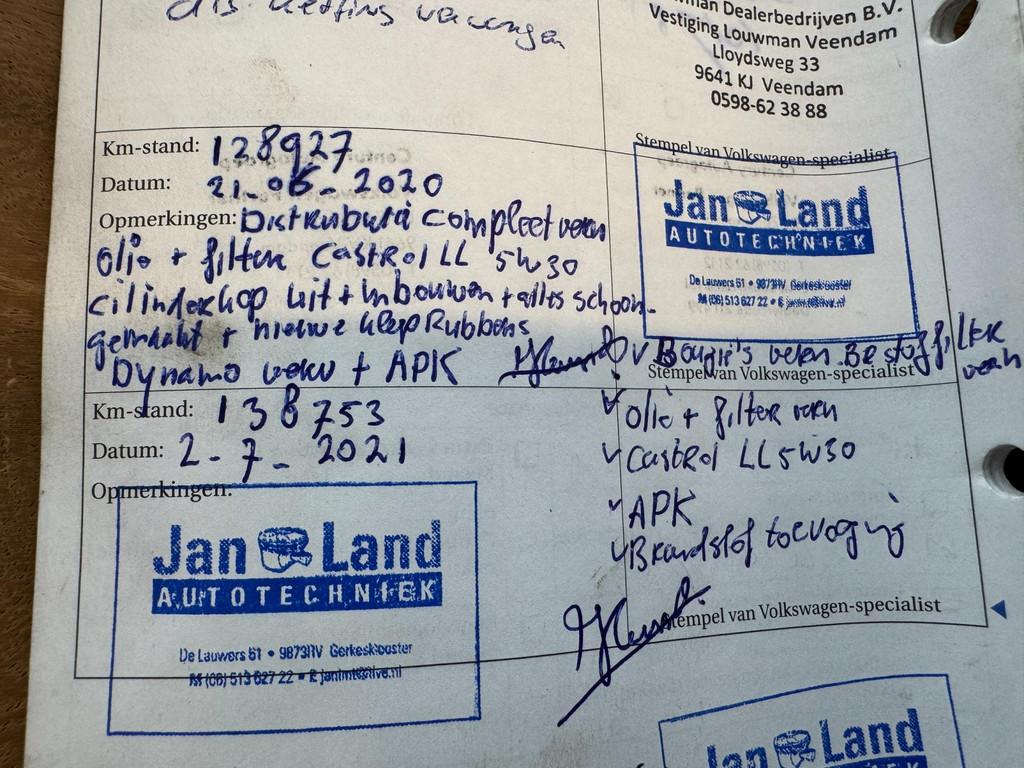 dis ketting vervangen
man Dealerbedrijven B.V.
Vestiging Louwman Veendam
Lloydsweg 33
9641 KJ Veendam
0598-62 38 88
Stempel van Volkswagen-specialist
Km-stand: 128927
Datum: 21-06-2020
Opmerkingen: Distributie compleet vern
Olie + filter Castrol LL 5W30
Cilinderkop uit + inbouwen + alles schoon
gemaakt + nieuwe klep Rubbers
Dynamo + APK
v Bougie's vern. Be stoffilter vern
Jan Land
AUTOTECHNIEK
De Lauwers 61 • 9873HV Gerkesklooster
M (06) 513 627 22 •
Stempel van Volkswagen-specialist
Km-stand: 138753
Datum: 2-7-2021
Opmerkingen:
v Olie + filter vern
v Castrol LL 5W30
v APK
v Brandstof toevoging
Jan Land
AUTOTECHNIEK
De Lauwers 61 • 9873HV Gerkesklooster
M (06) 513 627 22 •
Stempel van Volkswagen-specialist
Jan Land